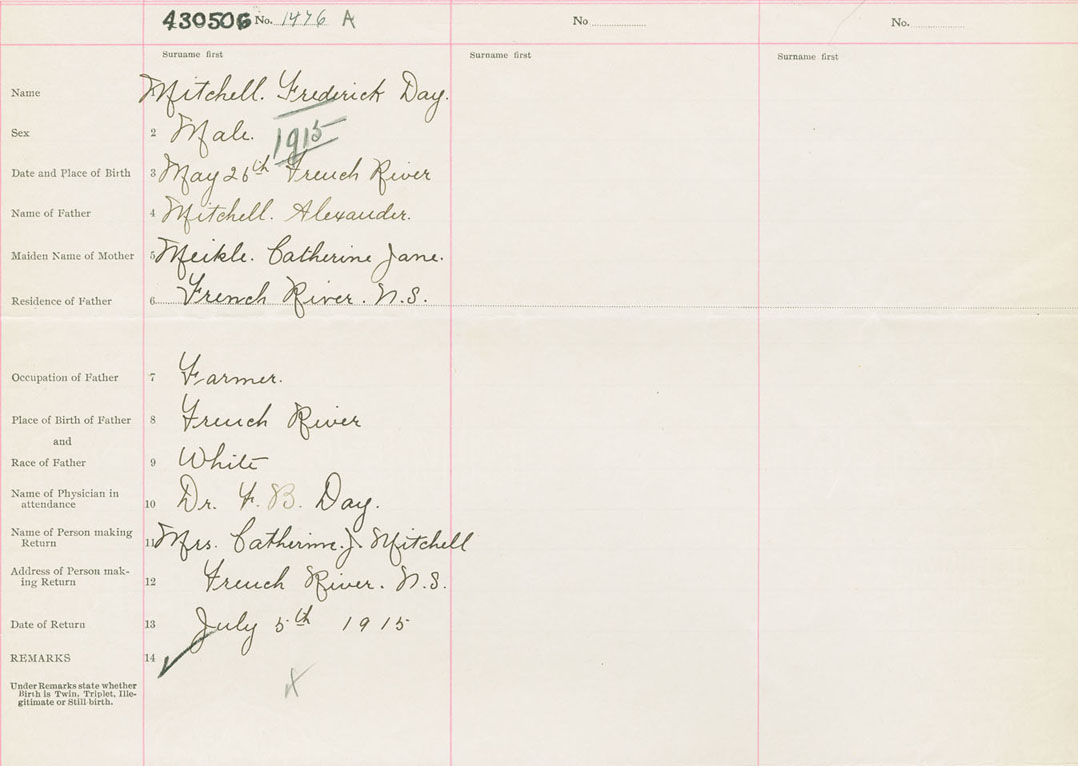 430506 No. 1476 A No No.
Surname first Surname first Surname first
Name 1 Mitchell. Frederick Day.
Sex 2 Male. 1915
Date and Place of Birth 3 May 26th French River
Name of Father 4 Mitchell. Alexander.
Maiden Name of Mother 5 Meikle. Catherine Jane.
Residence of Father 6 French River. N.S.
Occupation of Father 7 Farmer.
Place of Birth of Father 8 French River
and
Race of Father 9 White
Name of Physician in
attendance 10 Dr. F. B. Day.
Name of Person making
Return 11 Mrs. Catherine. J. Mitchell
Address of Person mak-
ing Return 12 French River. N.S.
Date of Return 13 July 5th 1915
REMARKS 14
Under Remarks state whether
Birth is Twin, Triplet, Ille-
gitimate or Still-birth.
X